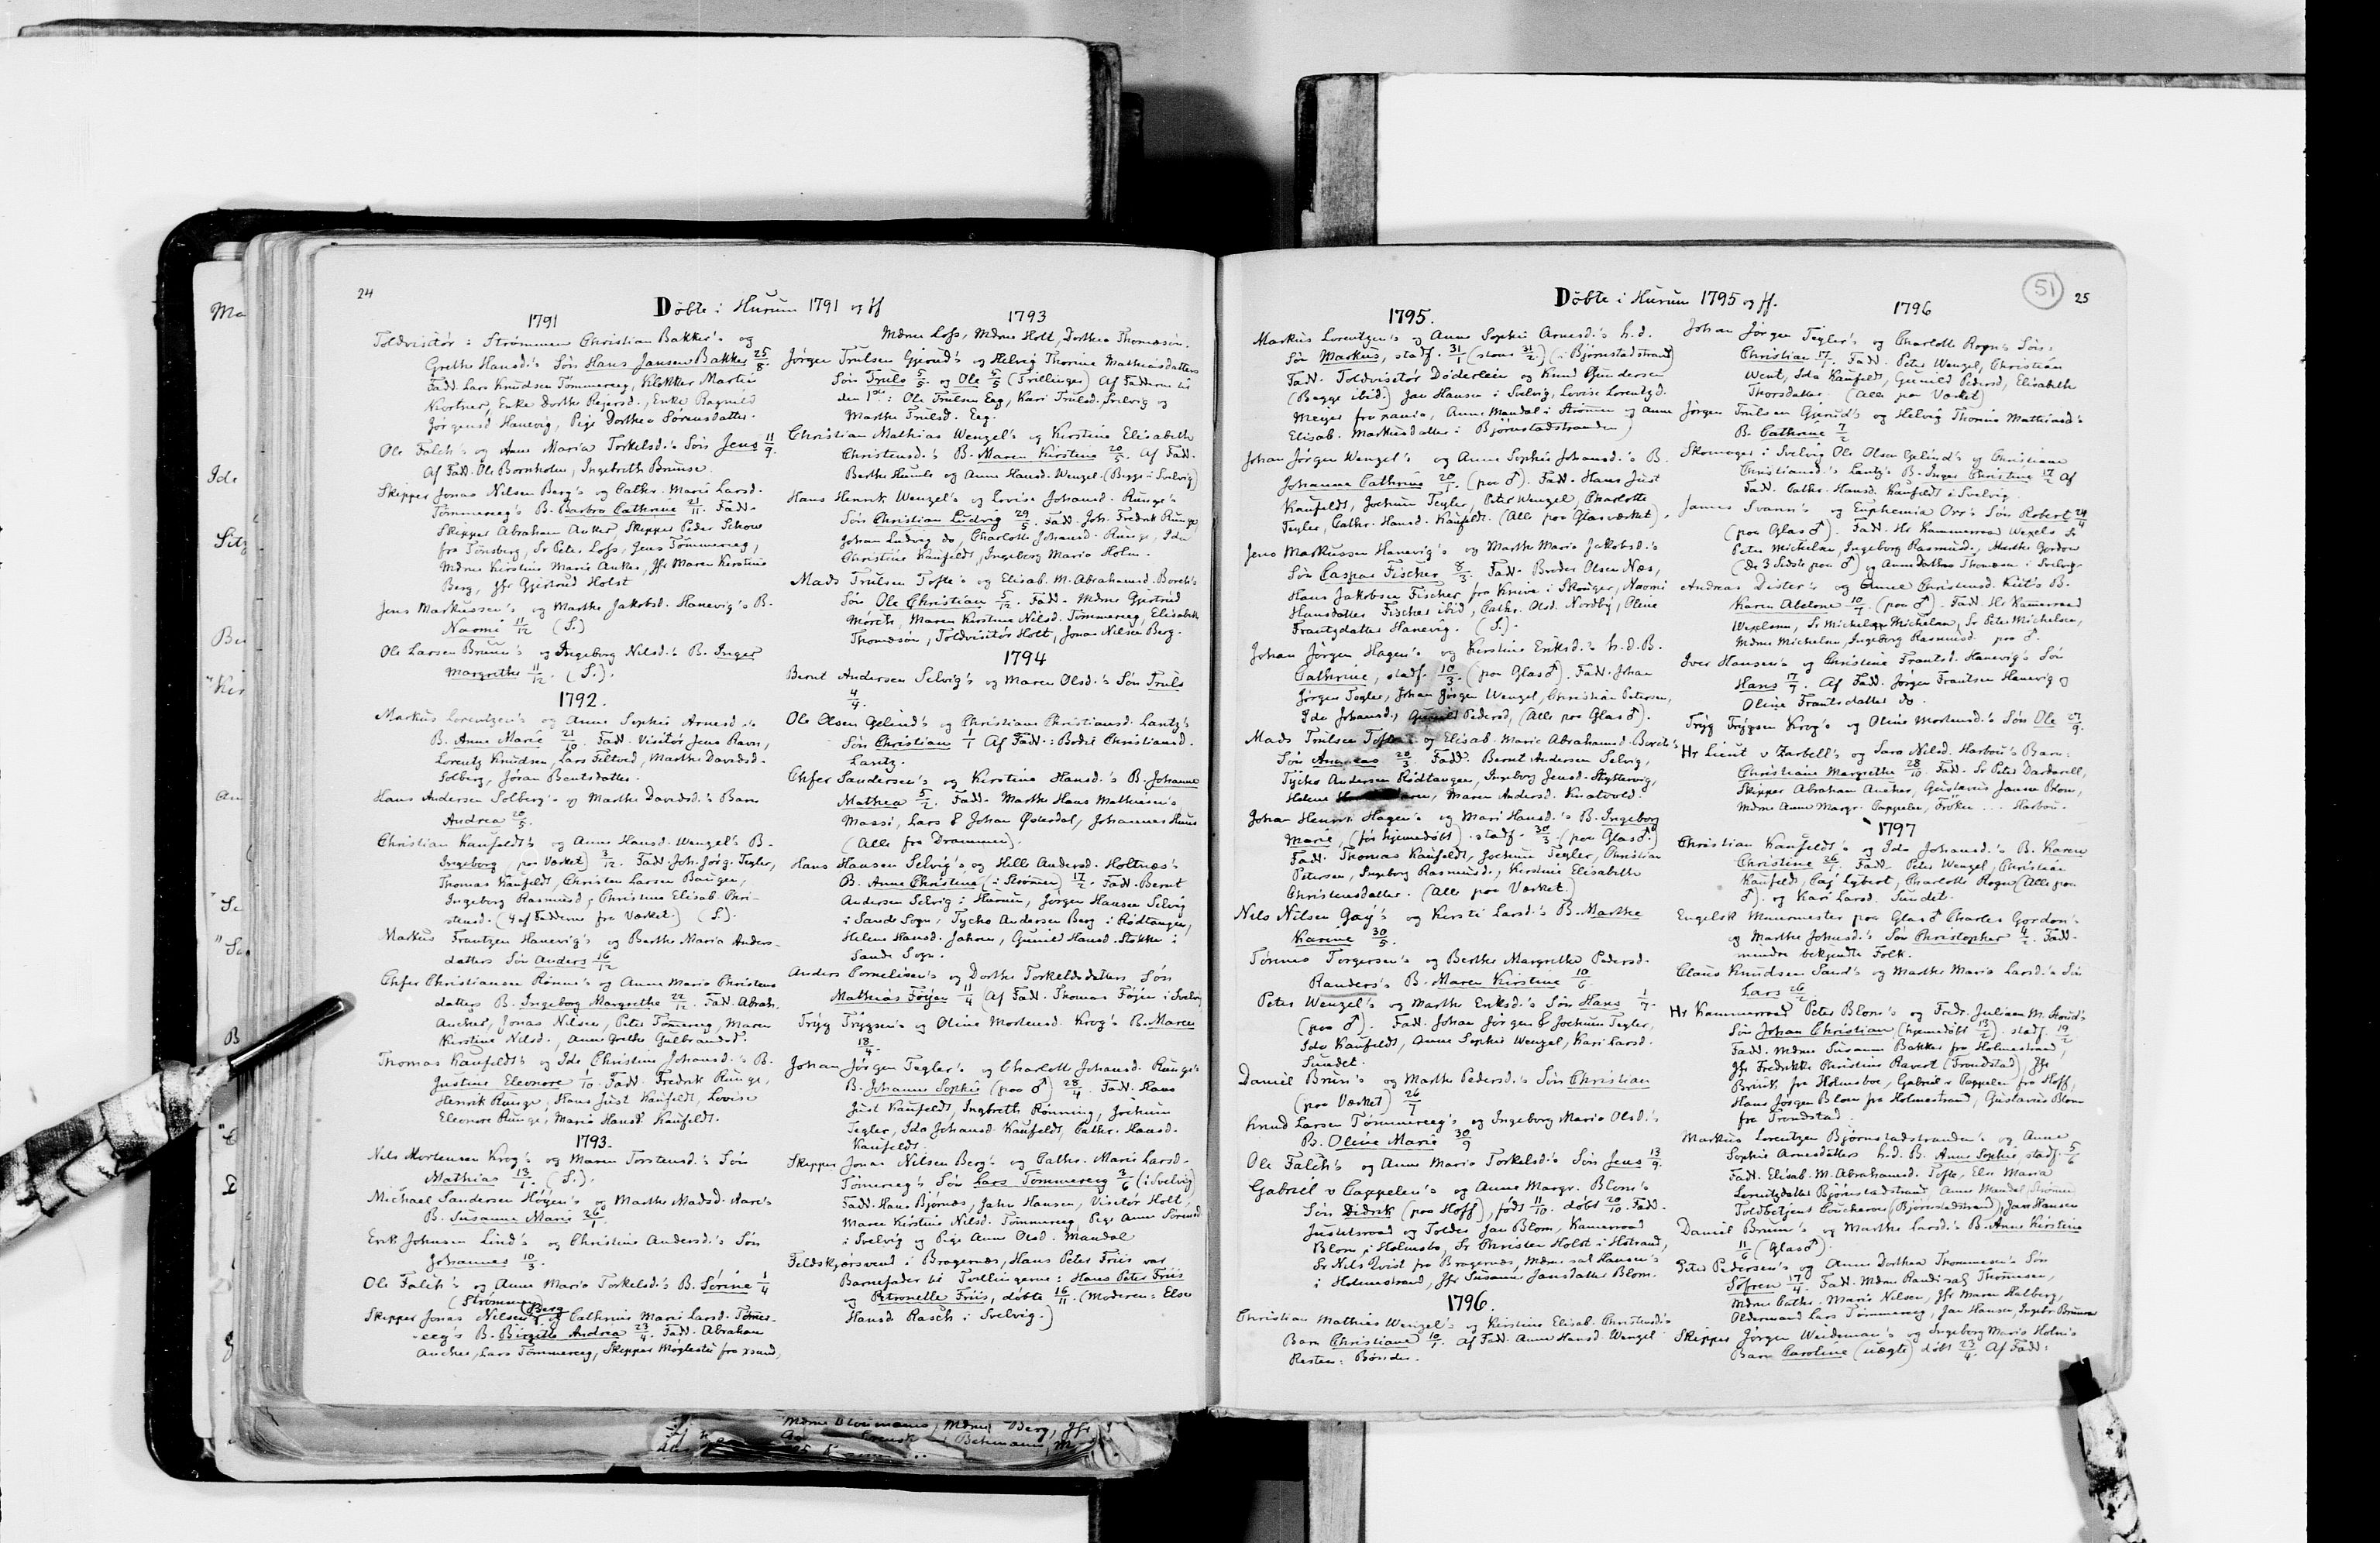 24
Döbte i Hurum 1791 og ff
1791
Toldvisitör i Strömmen Christian Bakke's og
Grethe Hansd.'s Sön Hans Jansen Bakke 25/8.
Fadd. Lars Knudsen Tömmereeg, Klokker Martin
Kiortner, Enke Dorthe Rejersd., Enke Ragnild
Jörgensd Hanevig, Pige Dorthea Sörensdatter.
Ole Falch's og Anne Maria Torkelsd.'s Sön Jens 11/9.
Af Fadd. Ole Bornholm, Ingebreth Brünse.
Skipper Jonas Nilsen Berg's og Cathr. Marie Larsd.
Tömmereeg's B. Barbro Cathrine 21/11. Fadd.
Skipper Abraham Anker, Skipper Peder Schow
fra Tönsberg, Sr Peter Lofs, Jens Tömmereeg,
Mdme Kirstine Marie Anker, Jfr Maren Kirstine
Berg, Jfr Gjertrud Holst
Jens Markussen's og Marthe Jakobsd. Hanevig's B.
Naomi 11/12 (S.)
Ole Larsen Bruun's og Ingeborg Nilsd.'s B. Inger
Margrethe 11/12. (S.).
1792.
Markus Lorentzen's og Anne Sophie Arnesd.'s
B. Anne Marie 21/10. Fadd. Visitör Jens Ravn,
Lorentz Knudsen, Lars Feltved, Marthe Davidsd.
Solberg, Jöran Bentsdatter.
Hans Andersen Solberg's og Marthe Davidsd.'s Barn
Andrea 20/5.
Christian Kaufeldt's og Anne Hansd. Wenzel's B.
Ingeborg (paa Værket) 3/12. Fadd. Joh. Jörg. Tegler,
Thomas Kaufeldt, Christen Larsen Bangen,
Ingeborg Rasmusd., Christine Elisab. Chri-
stensd. (4 af Fadderne fra Værket.) (S.).
Markus Frantzen Hanevig's og Berthe Maria Anders-
datters Sön Anders 16/12
Chfer Christiansen Rönne's og Anne Marie Christens
datters B. Ingeborg Margrethe 22/12. Fad. Abrah.
Ancher, Jonas Nilsen, Peter Tömmereeg, Maren
Kirstine Nilsd., Anne Grethe Gulbrandsd.
Thomas Kaufeldt's og Ide Christine Johansd.'s B.
Justine Eleonore 1/10. Fadd. Fredrik Runge,
Henrik Runge, Hans Just Kaufeldt, Lovise
Eleonore Runge, Marie Hansd. Kaufeldt.
1793.
Nels Mortensen Krog's og Maren Torstensd.'s Sön
Mathias 13/1. (S.).
Michael Sandersen Högen's og Marthe Madsd. Aare's
B. Susanne Marie 26/1.
Erik Johnsen Lind's og Christine Andersd.'s Sön
Johannes 10/3.
Ole Falch's og Anne Maria Torkelsd.'s B. Sörine 1/4
(Strömmen)
Skipper Jonas Nilsen Berg og Cathrine Marie Larsd. Tömer-
eeg's B. Birgitte Andrea 23/4. Fadd. Abraham
Ancher, Lars Tömmereeg, Skipper Möglestü fra xsand,
1793
Mdme Lofs, Mdme Holt, Dorthea Thomæsen.
Jörgen Trulsen Gjerud's og Helvig Thorine Mathiasdatters
Sön Truls 5/5. og Ole 5/5 (Tvillinger) Af Fadderne til
den 1ste: Ole Trulsen Eeg, Kari Trulsd. Svelvig og
Marthe Trulsd. Eeg.
Christian Mathias Wenzel's og Kirstine Elisabeth
Christensd.'s B. Maren Kirstine 20/5. Af Fadd.
Berthe Humle og Anne Hansd. Wenzel (Begge i Svelvig)
Hans Henrik Wenzel's og Lovise Johansd. Runge's
Sön Christian Ludvig 29/5. Fadd. Joh. Fredrik Runge
Johan Ludvig do, Charlotte Johansd. Runge, Ide
Christine Kaufeldt, Ingeborg Marie Holm.
Mads Trulsen Tofte's og Elisab. M. Abrahamsd. Borch's
Sön Ole Christian 5/12. Fadd. Mdme Gjertrud
Mörch, Maren Kirstine Nilsd. Tömmereeg, Elisabeth
Thomæson, Toldvisitör Holt, Jonas Nilsen Berg.
1794
Bernt Andersen Selvig's og Maren Olsd.'s Sön Truls
4/4.
Ole Olsen Gelind's og Christiane Christiansd. Lantz's
Sön Christian 1/1 Af Fadd.: Bodil Christiansd.
Lantz.
Chfer Sandersen's og Kirstine Hansd.'s B. Johanne
Mathea 5/2. Fadd. Marthe Hans Mathiesen's,
Massi, Lars & Johan Österdal, Johannes Huus
(Alle fra Drammen).
Hans Hansen Selvig's og Helle Andersd. Holtnæs's
B. Anne Christine (i Strömmen) 17/2. Fadd. Bernt
Andersen Selvig i Hurum, Jörgen Hansen Selvig
i Sande Sogn, Tycho Andersen Berg i Rödtangen,
Helene Hansd. Jahren, Gunild Hansd. Stokke i
Sande Sogn.
Anders Cornelisen's og Dorthe Torkeldsdatters Sön
Mathias Föijen 11/4 (Af Fadd. Thomas Föjen i Svelvig)
Tryg Trygsen's og Oline Mortensd. Krog's B. Maren
18/4.
Johan Jörgen Tegler's og Charlotte Johansd. Runge's
B. Johanne Sophie (paa ♂) 28/4. Fadd. Hans
Just Kaufeldt, Ingbreth Rönning, Jochum
Tegler, Ide Johansd. Kaufeldt, Cathr. Hansd.
Kaufeldt.
Skipper Jonas Nilsen Berg's og Cathr. Marie Larsd.
Tömereeg's Sön Lars Tömmereeg 3/6 (i Svelvig)
Fadd. Hans Björnæs, Jahn Hansen, Visitör Holt,
Maren Kirstine Nilsd. Tömmereeg, Pige Anne Sörensd
i Svelvig og Pige Anne Olsd. Mandal
Feldskjærsvend i Bragernæs, Hans Peter Friis var
Barnefader til Tvillingerne: Hans Peter Friis
og Petronelle Friis, döbte 16/11. (Moderen: Else
Hansd. Rasch i Svelvig.)
Döbte i Hurum 1795 og ff.
51
25
1795.
Markus Lorentzen's og Anne Sophie Arnesd.'s h.d.
Sön Markus, stadf. 31/1 (i Björnestadstrand)
Fadd. Toldvisitör Döderlein og Knud Gundersen
(Begge ibid.) Jan Hansen i Svelvig, Lovise Lorentzd.
Elisab. Markusdatter i Björnestadstranden)
Johan Jörgen Wenzel's og Anne Sophie Johansd.'s B.
Johanne Cathrine 20/1. (paa ♂). Fadd. Hans Just
Kaufeldt, Jochum Tegler, Peter Wenzel, Charlotte
Tegler, Cathr. Hansd. Kaufeldt. (Alle paa Glasværket).
Jens Markussen Hanevig's og Marthe Marie Jakobsd.'s
Sön Caspar Fischer 8/3. Fadd. Broder Olsen Næs,
Hans Jakobsen Fischer fra Knive i Skouger, Naomi
Hansdatter Fischer ibid, Cathr. Olsd. Nordby, Oline
Frantzdatter Hanevig. (S.).
Johan Jörgen Hagen's og Kirstine Eriksd.'s h.d. B.
Cathrine, stadf. 10/3. (paa Glas♂). Fadd. Johan
Jörgen Tegler, Johan Jörgen Wenzel, Christian Petersen,
Ide Johansd., Gunild Pedersd, (Alle paa Glas♂).
Mads Trulsen Tofte's og Elisab. Marie Abrahamsd. Borch's
Sön Andreas 20/3. Fadd. Bernt Andersen Selvig,
Tycho Andersen Rödtangen, Ingeborg Jensd. Støttervig,
Helene, Maren Andersd. Knatvold.
Johan Henrik Hagen's og Mari Hansd.'s B. Ingeborg
Marie, (för hjemedöbt) stadf. 30/3 (paa Glas♂)
Fadd. Thomas Kaufeldt, Jochum Tegler, Christian
Petersen, Ingeborg Rasmusd., Kirstine Elisabeth
Christensdatter. (Alle paa Værket.)
Nels Nilsen Gay's og Kirsti Larsd.'s B. Marthe
Karine 30/5.
Tönnes Torgersen's og Berthe Margrethe Pedersd.
Randers's B. Maren Kirstine 10/6.
Peter Wenzel's og Marthe Eriksd.'s Sön Hans 1/7.
(paa ♂). Fadd. Johan Jörgen & Jochum Tegler,
Ide Kaufeldt, Anne Sophie Wenzel, Kari Larsd.
Sundet.
Daniel Brun's og Marthe Pedersd.'s Sön Christian
(paa Værket) 26/7
Knud Larsen Tömmereeg's og Ingeborg Marie Olsd.'s
B. Oline Marie 30/9
Ole Falch's og Anne Marie Torkelsd.'s Sön Jens 13/9.
Gabriel v Cappelen's og Anne Margr. Blom's
Sön Didrik (paa Hoff), födt 11/10. döbt 20/10. Fadd.
Justitsraad og Tolder Jan Blom, Kamerraad
Blom, i Holmsbo, Sr Christen Holst i Hstrand,
Sr Nils Qvist fra Bragernæs, Mdme sal Hansen's
i Holmestrand, Jfr Susanne Jansdatter Blom.
1796.
Christian Mathias Wenzel's og Kirstine Elisab. Christensd.'s
Barn Christiane 10/1. Af Fadd. Anne Hansd. Wenzel
Resten: Bönder.
1796
Johan Jörgen Tegler's og Charlotte Rogn's Sön:
Christian 17/1. Fadd. Peter Wenzel, Christian
Went, Ida Kaufeldt, Gunild Pedersd, Elisabeth
Thorsdatter. (Alle paa Værket)
Jörgen Trulsen Gjerud's og Helvig Thorine Mathiasd.'s
B. Cathrine 7/2
Skomager i Svelvig Ole Olsen Gelind's og Christiane
Christiansd.'s Lantz's B. Inger Christine 17/2 Af
Fadd. Cathr. Hansd. Kaufeldt i Svelvig.
James Svann's og Euphemia Orr's Sön Robert 24/4
(paa Glas♂). Fadd. Hr Kammerraad Wexels Sr
Peter Michelsen, Ingeborg Rasmusd., Marthe Gordon
(De 3 Sidste paa ♂) og Anne Dorthea Thomæsen i Svelvig.
Andreas Dister's og Anne Christensd. Kiit's B.
Karen Alstone 10/7. (paa ♂). Fadd. Hr Kamerraad
Wexlsen, Sr Michelsen, Sr Peter Michelsen,
Mdme Michelsen, Ingeborg Rasmusd. paa ♂.
Iver Hansen's og Christine Frantsd. Hanevig's Sön
Hans 17/7. Af Fadd. Jörgen Frantsen Hanevig og
Oline Frantsdatter do.
Tryg Trygsen Krog's og Oline Mortensd.'s Sön Ole 27/9.
Hr Lieut v Zarbell's og Sara Nilsd. Harbou's Barn:
Christiane Margrethe 28/10 Fadd. Sr Peter Dardarell,
Skipper Abraham Ancher, Gustavus Jansen Blom,
Mdme Anne Margr. Cappelen, Fröken ... Harbou.
1797
Christian Kaufeldt's og Ide Johansd.'s B. Karen
Christine 26/1. Fadd. Peter Wenzel, Christian
Kaufeldt, Caj Lybert, Charlotte Rogn (Alle paa
♂). og Kari Larsd. Sundet.
Engelsk Muurmester paa Glas♂ Charles Gordon's
og Marthe Johnsd.'s Sön Christopher 4/2. Fadd.
mindre bekjendte Folk.
Claus Knudsen Sand's og Marthe Marie Larsd.'s Sön
Lars 26/2
Hr Kammerraad Peter Blom's og Frdr. Juliane M. Houd's
Sön Johan Christian (hjemedöbt 13/2). stadf. 19/2
Fadd. Mdme Susanne Bakke fra Holmestrand,
Jfr Fredrikke Christine Ravert (Trondstad), Jfr
Brinck fra Holmsboe, Gabriel v Cappelen fra Hoff,
Hans Jörgen Blom fra Holmestrand, Gustavus Blom
fra Trondstad.
Markus Lorentzen Björnestadstranden's og Anne
Sophie Arnesdatters h.d. B. Anne Sophie, stadf. 5/6
Fadd. Elisab. M. Abrahamsd. Tofte, Else Maria
Lorentzdatter Björnestadstrand, Anne Mandal Strömmen
Toldbetjent Coucheron (Björnestadstrand), Jan Hansen
Daniel Bruun's og Marthe Larsd.'s B. Anne Kirstine
11/6 (Glas♂).
Peter Pedersen's og Anne Dorthea Thommesen's Sön
Söfren 17/4. Fadd. Mdm Randi sal Thommesen,
Mdme Cathr. Marie Nilsen, Jfr Maren Halberg,
Oldermand Lars Tömmereeg, Jan Hansen, Ingebr Brünse
Skipper Jörgen Weideman's og Ingeborg Marie Holm's
Barn Caroline (uægte) döbt 23/4. Af Fadd: